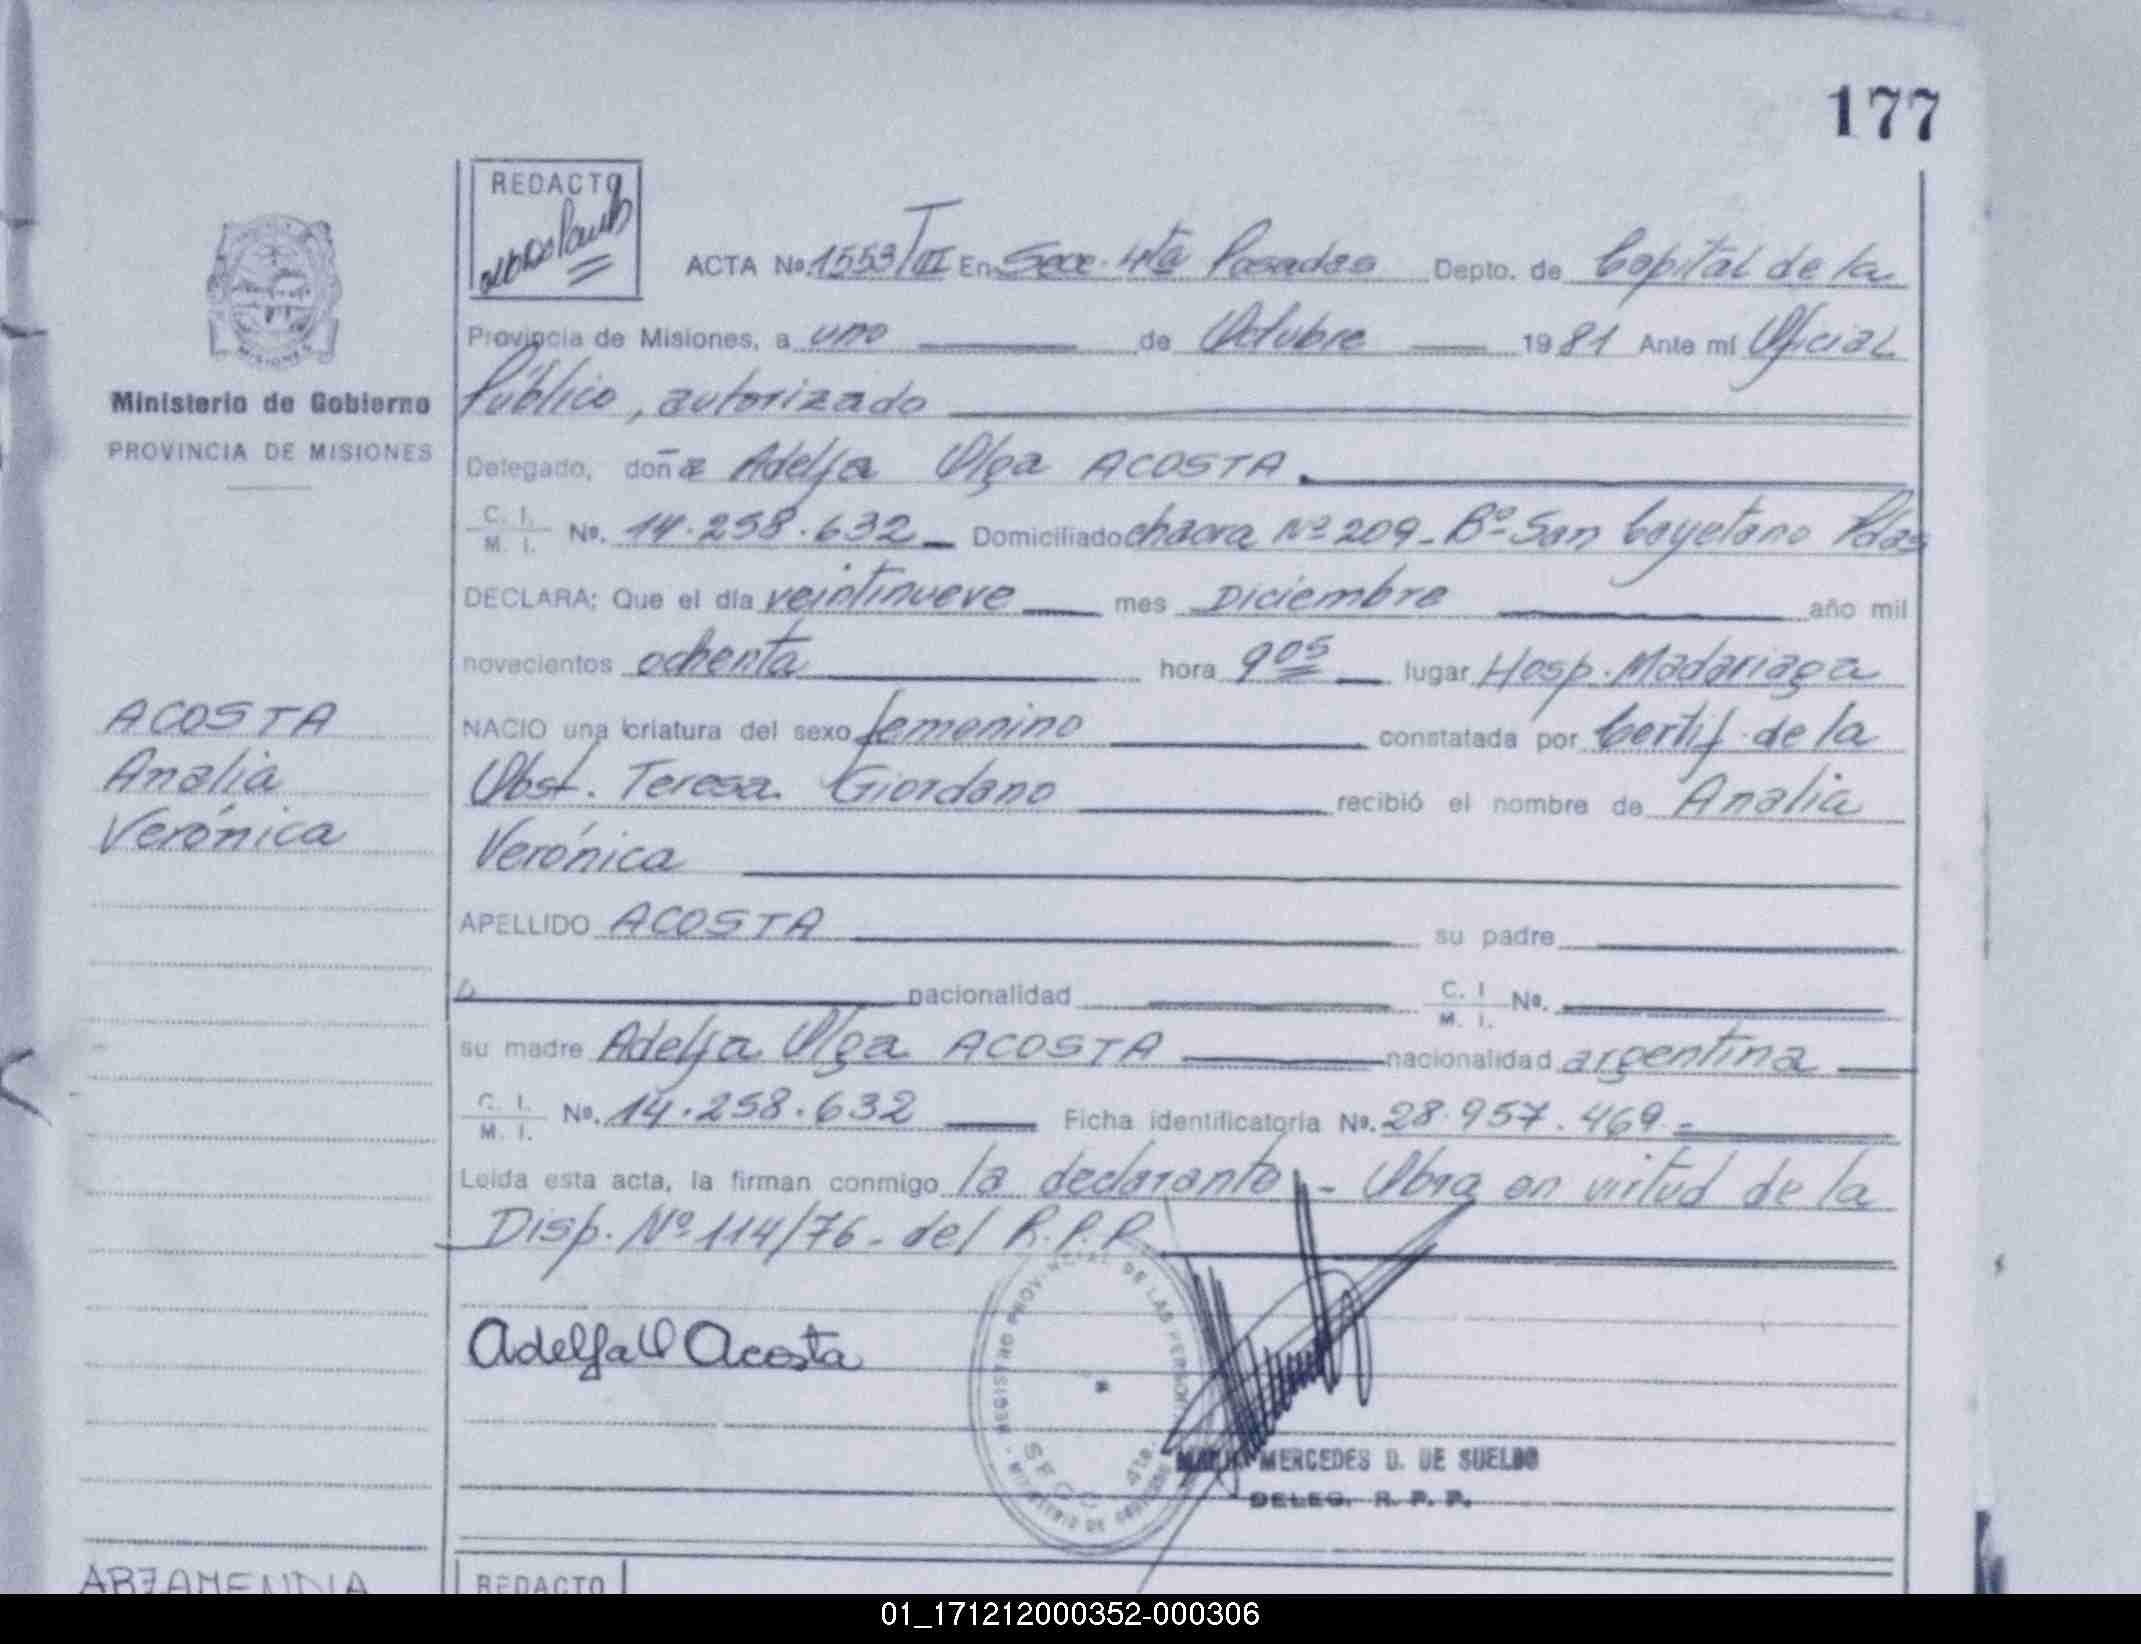 177
REDACTO
ACTA Nº 1553/TIII En Secc. 4ta Posadas Depto. de Capital de la
Provincia de Misiones, a uno de Octubre 1981 Ante mí Oficial
MISIONES
Ministerio de Gobierno
PROVINCIA DE MISIONES
Público, autorizado
Delegado, doña Adelfa Olga ACOSTA.
C. I. M. I. Nº. 14.258.632 Domiciliado chacra Nº 209 - Bº San Cayetano Pdas
DECLARA: Que el día veintinueve mes Diciembre año mil
novecientos ochenta hora 9 05 lugar Hosp. Madariaga
ACOSTA
Analia
Verónica
NACIO una criatura del sexo femenino constatada por Certif. de la
Obst. Teresa Giordano recibió el nombre de Analia
Verónica
APELLIDO ACOSTA su padre
nacionalidad C. I M. I. Nº.
su madre Adelfa Olga ACOSTA nacionalidad argentina
C. I. M. I. Nº. 14.258.632 Ficha identificatoria Nº. 28.957.469.-
Leida esta acta, la firman conmigo la declarante - Obra en virtud de la
Disp. Nº 114/76 - del R.P.P.
Adelfa O Acosta
REGISTRO PROVINCIAL DE LAS PERSONAS
SECC. 4ta
MINISTERIO DE GOBIERNO
MERCEDES D. DE SUELDO
DELEG. R. P. P.
ARZAMENDIA
REDACTO
01_171212000352-000306